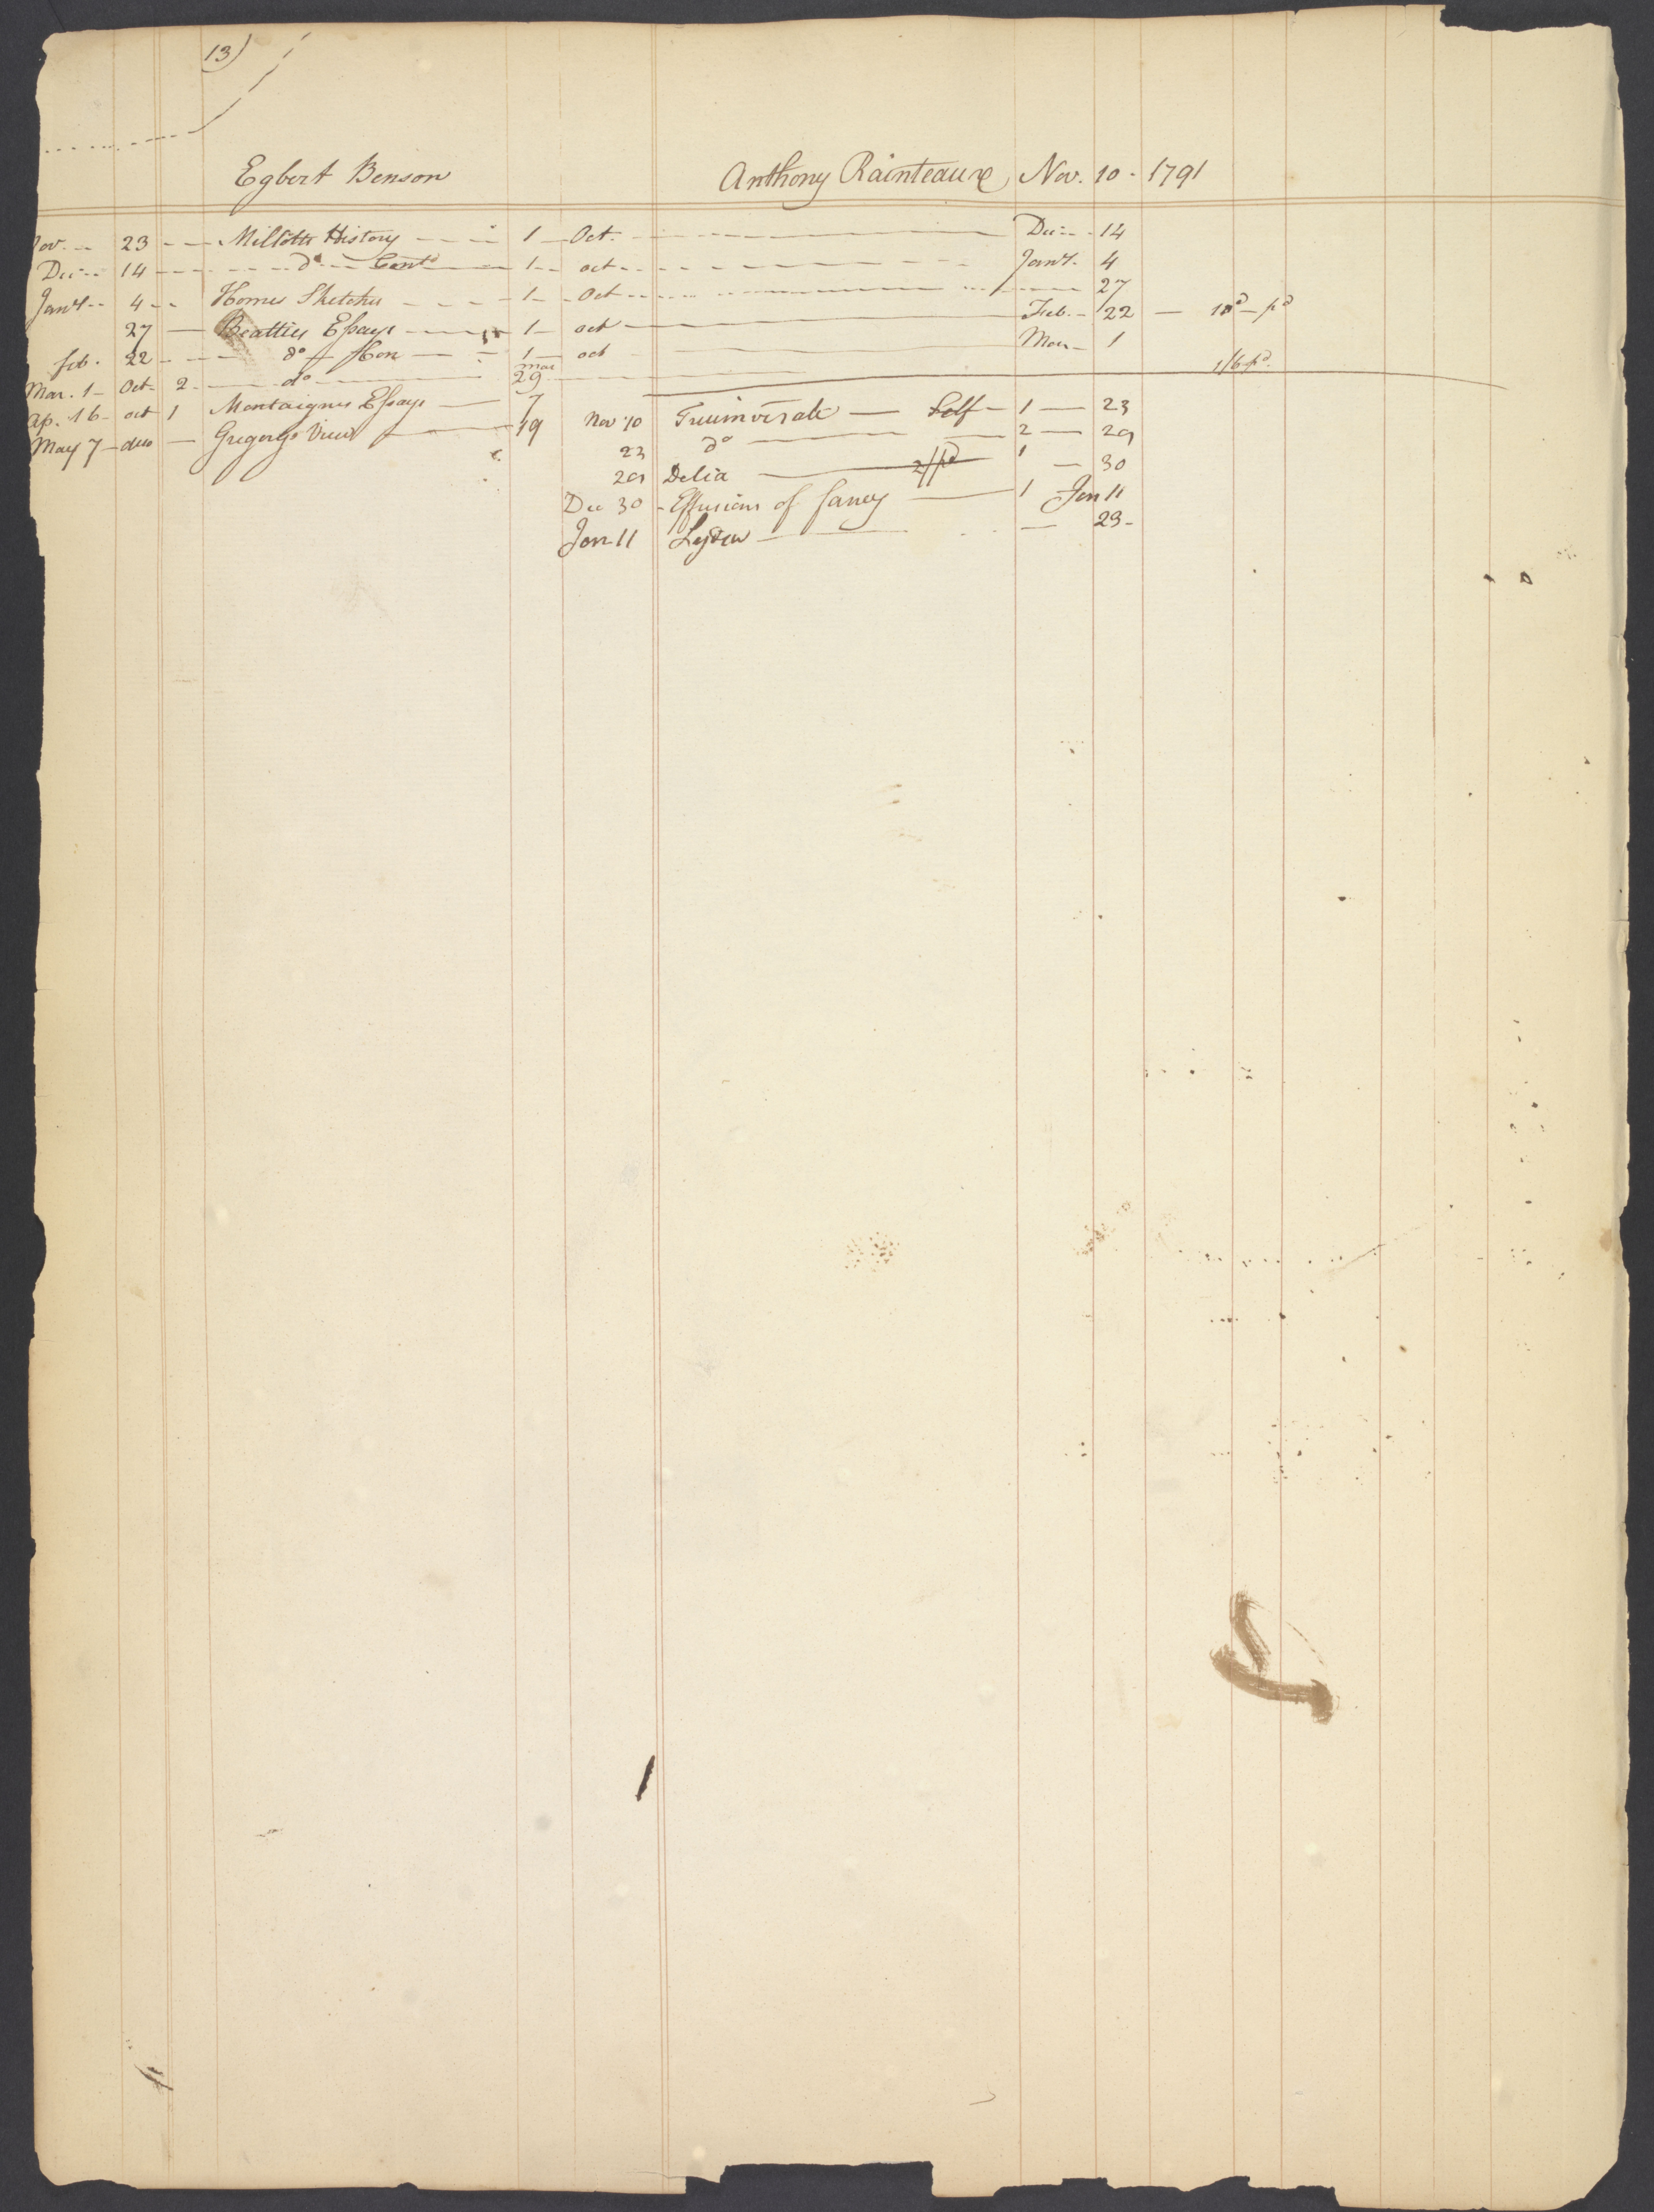 13)
Egbert Benson
Anthony Rainteaux Nov. 10 - 1791
Nov. 23 Millotts History 1 Oct. Dec 14
Dec 14 do Cont 1 oct Jany. 4
Jany 4 Homes Sketches 1 Oct 27
27 Beatties Essays 1 oct Feb. 22 pd
Feb. 22 do 1 oct Mar 1
Mar. 1 Oct 2 do Mar 29 1/6 pd.
Ap. 16 oct 1 Montaignes Essays 7
May 7 duo Gregorys View 19
Nov 10 Triumvirate Self 1 23
23 do 2 29
29 Delia 2/ pd 1 30
Dec 30 Effusions of fancy 1 Jan 11
Jan 11 23